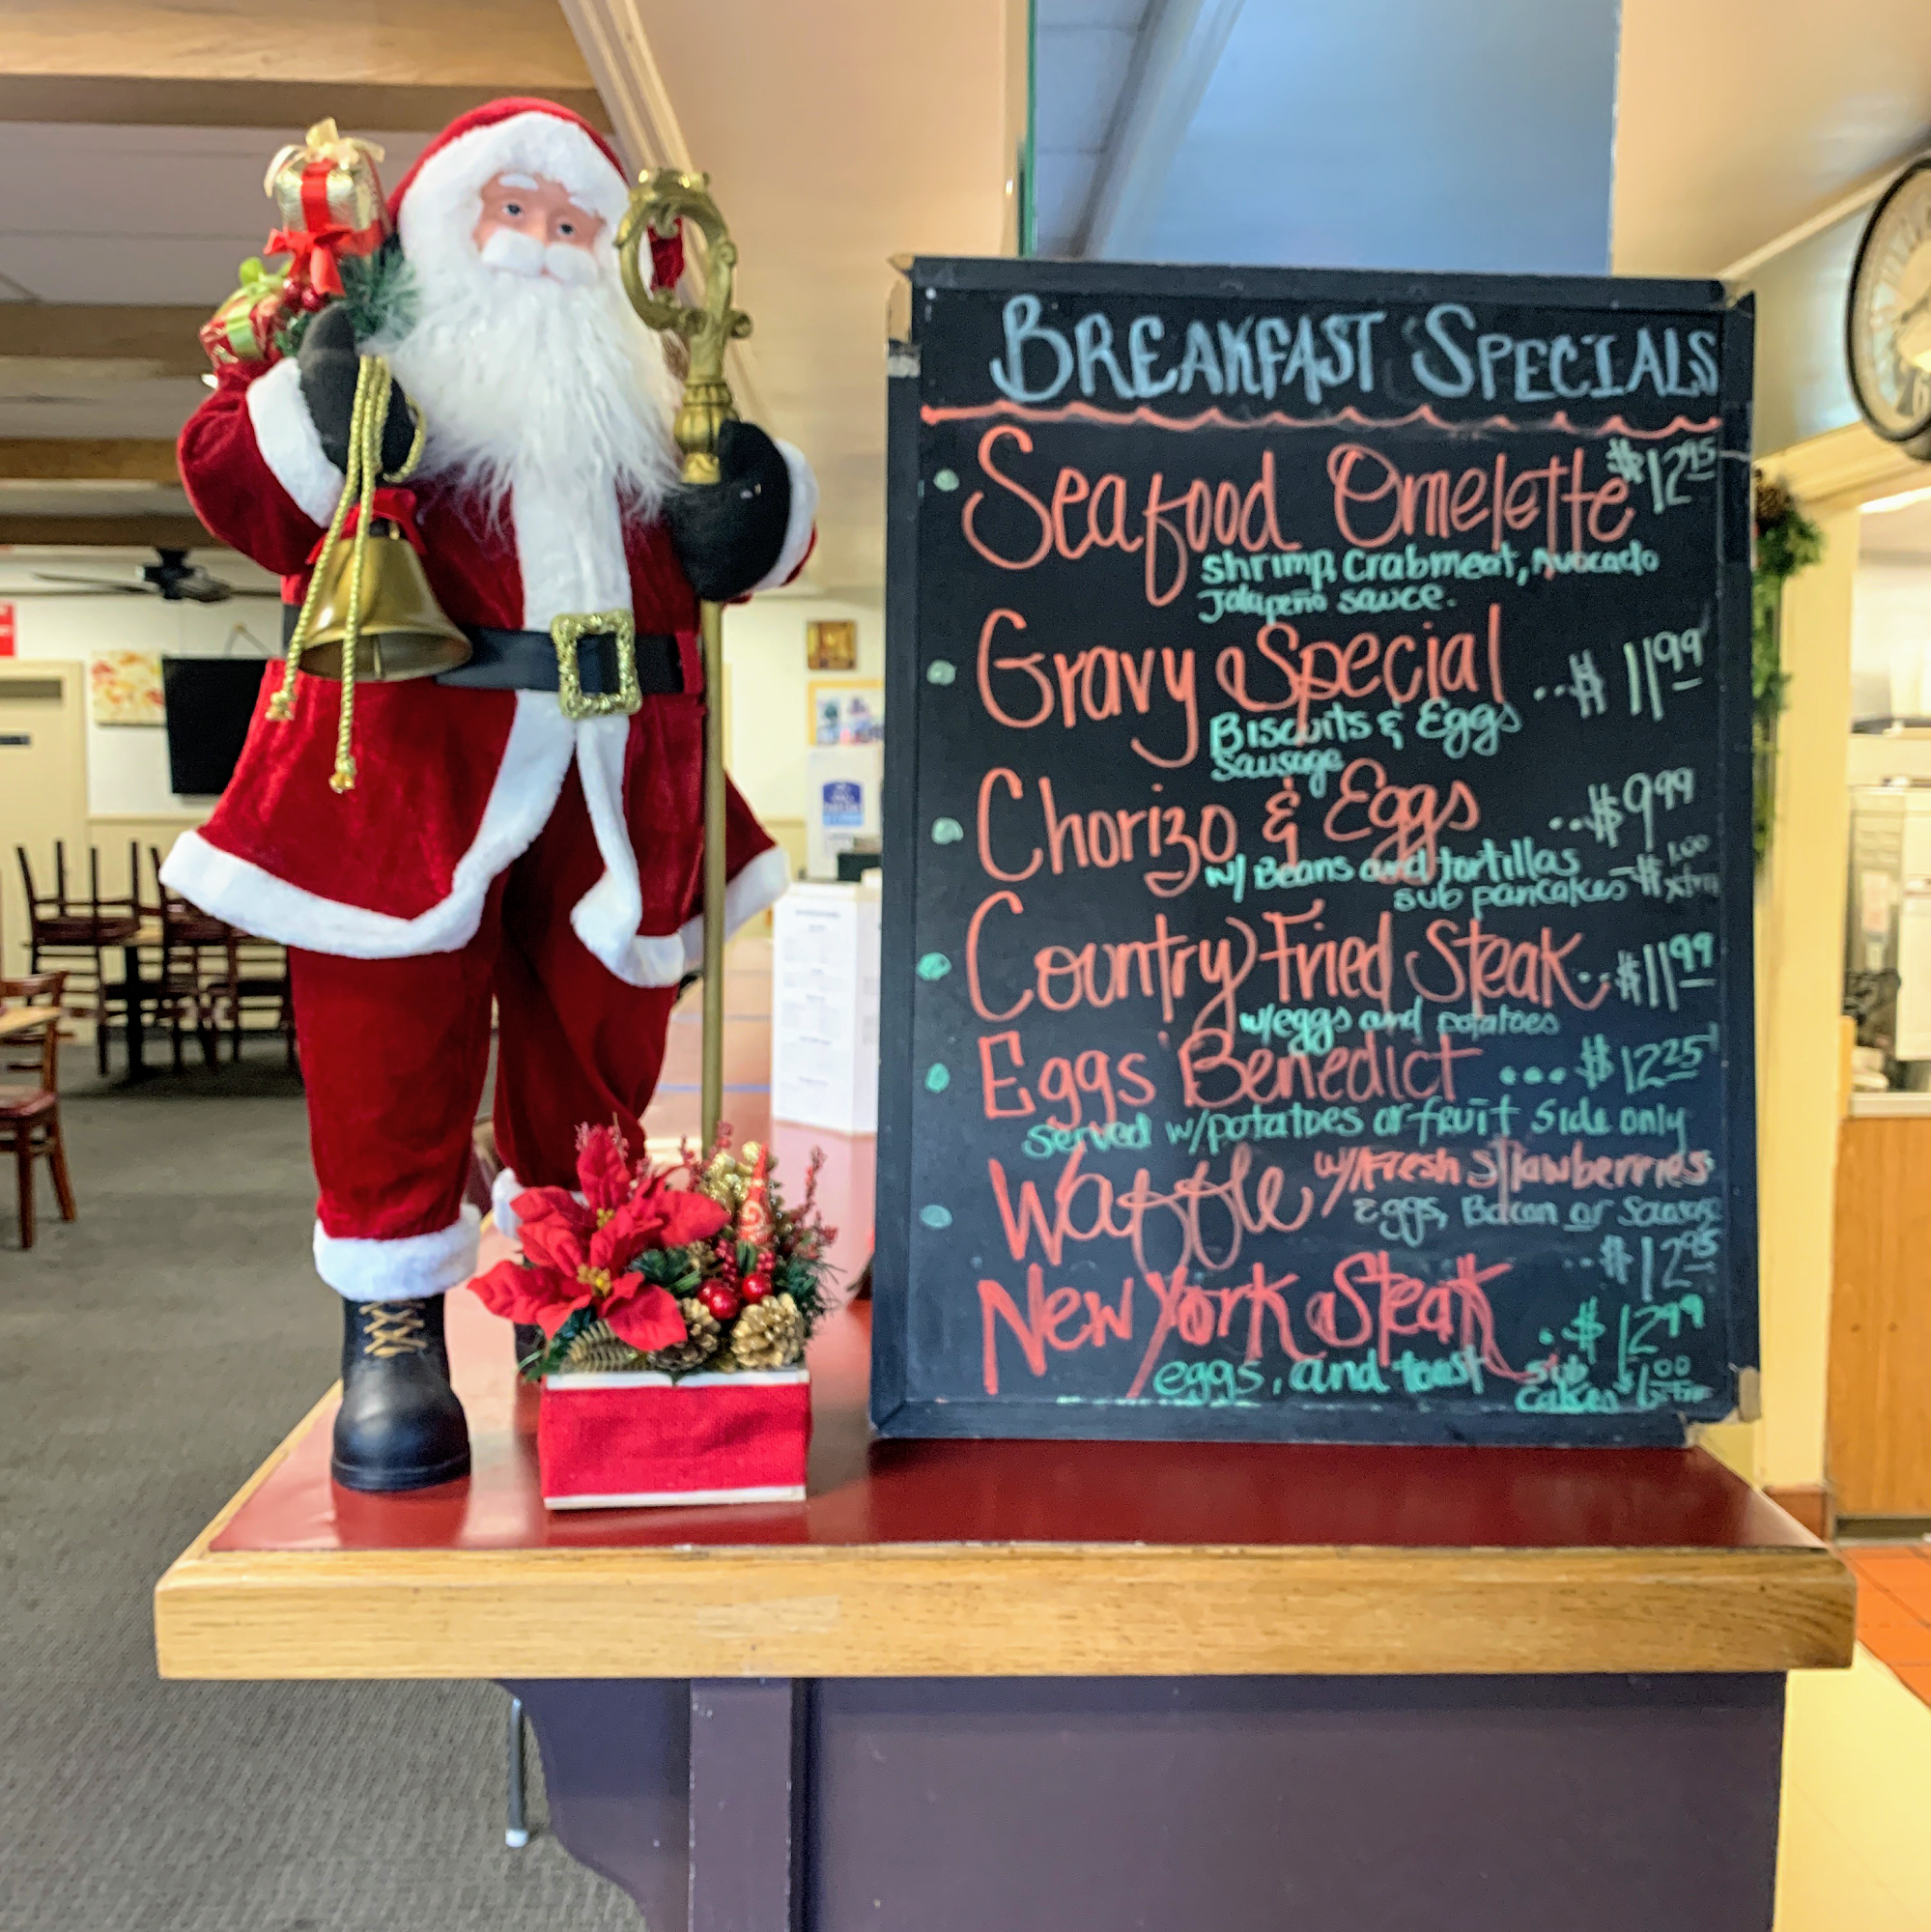 BREAKFAST SPECIALS
Seafood Omelette $12.95
Shrimp, Crabmeat, Avocado
Jalapeño sauce.
Gravy Special ..$11.99
Biscuits & Eggs
Sausage
Chorizo & Eggs ..$9.99
w/ Beans and tortillas
sub pancakes -$1.00 xtra
Country Fried Steak..$11.99
w/eggs and potatoes
Eggs Benedict ...$12.25
Served w/potatoes or fruit Side only
Waffle w/Fresh Strawberries
Eggs, Bacon or Sausage
..$12.95
New York Steak ..$12.99
eggs, and toast sub
cakes $1.00